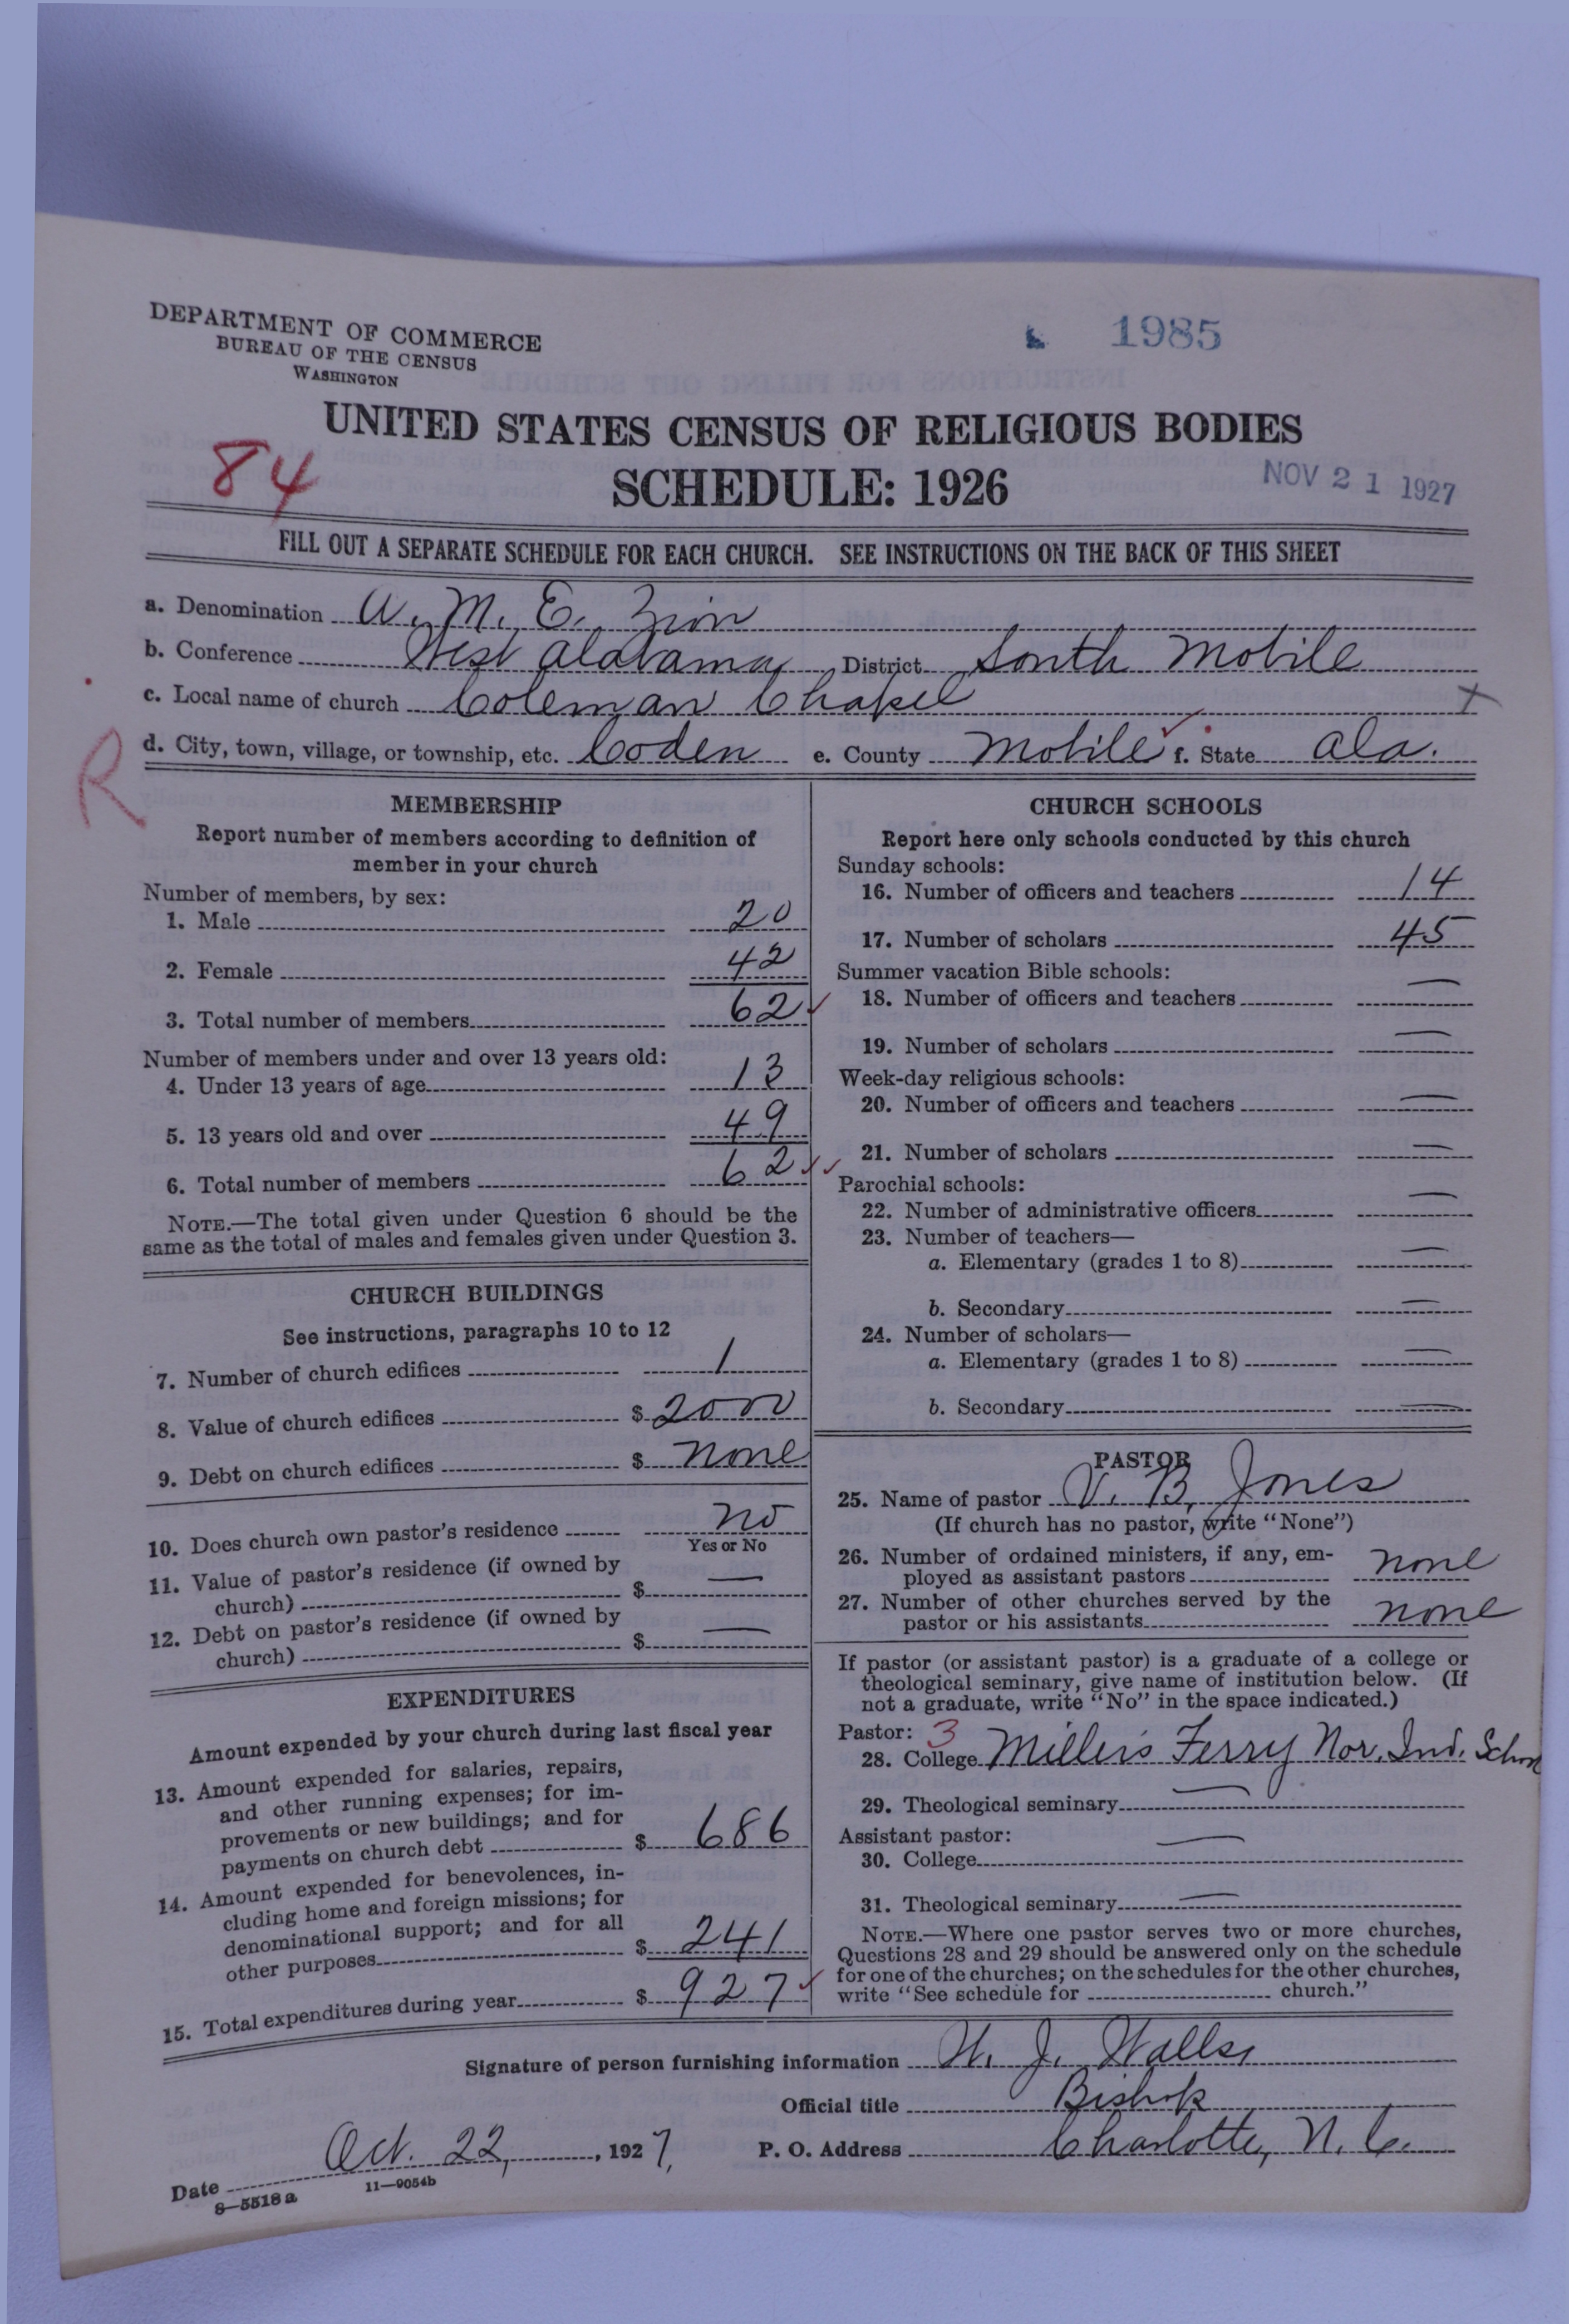 DEPARTMENT OF COMMERCE
BUREAU OF THE CENSUS
WASHINGTON
1985
UNITED STATES CENSUS OF RELIGIOUS BODIES
84
SCHEDULE: 1926
NOV 21 1927
FILL OUT A SEPARATE SCHEDULE FOR EACH CHURCH. SEE INSTRUCTIONS ON THE BACK OF THIS SHEET
a. Denomination A. M. E. Zion
b. Conference West Alabama District South Mobile
c. Local name of church Coleman Chapel x
d. City, town, village, or township, etc. Coden e. County Mobile ✓ f. State Ala.
R
MEMBERSHIP
Report number of members according to definition of
member in your church
Number of members, by sex:
1. Male 20
2. Female 42
3. Total number of members 62 ✓
Number of members under and over 13 years old:
4. Under 13 years of age 13
5. 13 years old and over 49
6. Total number of members 62 ✓ ✓
NOTE.—The total given under Question 6 should be the
same as the total of males and females given under Question 3.
CHURCH BUILDINGS
See instructions, paragraphs 10 to 12
7. Number of church edifices 1
8. Value of church edifices $ 2000
9. Debt on church edifices $ none
10. Does church own pastor's residence no
Yes or No
11. Value of pastor's residence (if owned by
church) $ —
12. Debt on pastor's residence (if owned by
church) $ —
EXPENDITURES
Amount expended by your church during last fiscal year
13. Amount expended for salaries, repairs,
and other running expenses; for im-
provements or new buildings; and for
payments on church debt $ 686
14. Amount expended for benevolences, in-
cluding home and foreign missions; for
denominational support; and for all
other purposes $ 241
15. Total expenditures during year $ 927 ✓
CHURCH SCHOOLS
Report here only schools conducted by this church
Sunday schools:
16. Number of officers and teachers 14
17. Number of scholars 45
Summer vacation Bible schools:
18. Number of officers and teachers —
19. Number of scholars —
Week-day religious schools:
20. Number of officers and teachers —
21. Number of scholars —
Parochial schools:
22. Number of administrative officers —
23. Number of teachers—
a. Elementary (grades 1 to 8) —
b. Secondary —
24. Number of scholars—
a. Elementary (grades 1 to 8) —
b. Secondary —
PASTOR
25. Name of pastor V. B. Jones
(If church has no pastor, write "None")
26. Number of ordained ministers, if any, em-
ployed as assistant pastors none
27. Number of other churches served by the
pastor or his assistants none
If pastor (or assistant pastor) is a graduate of a college or
theological seminary, give name of institution below. (If
not a graduate, write "No" in the space indicated.)
Pastor: 3
28. College Millers Ferry Nor. Ind. School
29. Theological seminary —
Assistant pastor:
30. College —
31. Theological seminary —
NOTE.—Where one pastor serves two or more churches,
Questions 28 and 29 should be answered only on the schedule
for one of the churches; on the schedules for the other churches,
write "See schedule for church."
Signature of person furnishing information W. J. Walls,
Official title Bishop
Date Oct. 22, 1927, P. O. Address Charlotte, N. C.
8—5518a 11—9054b